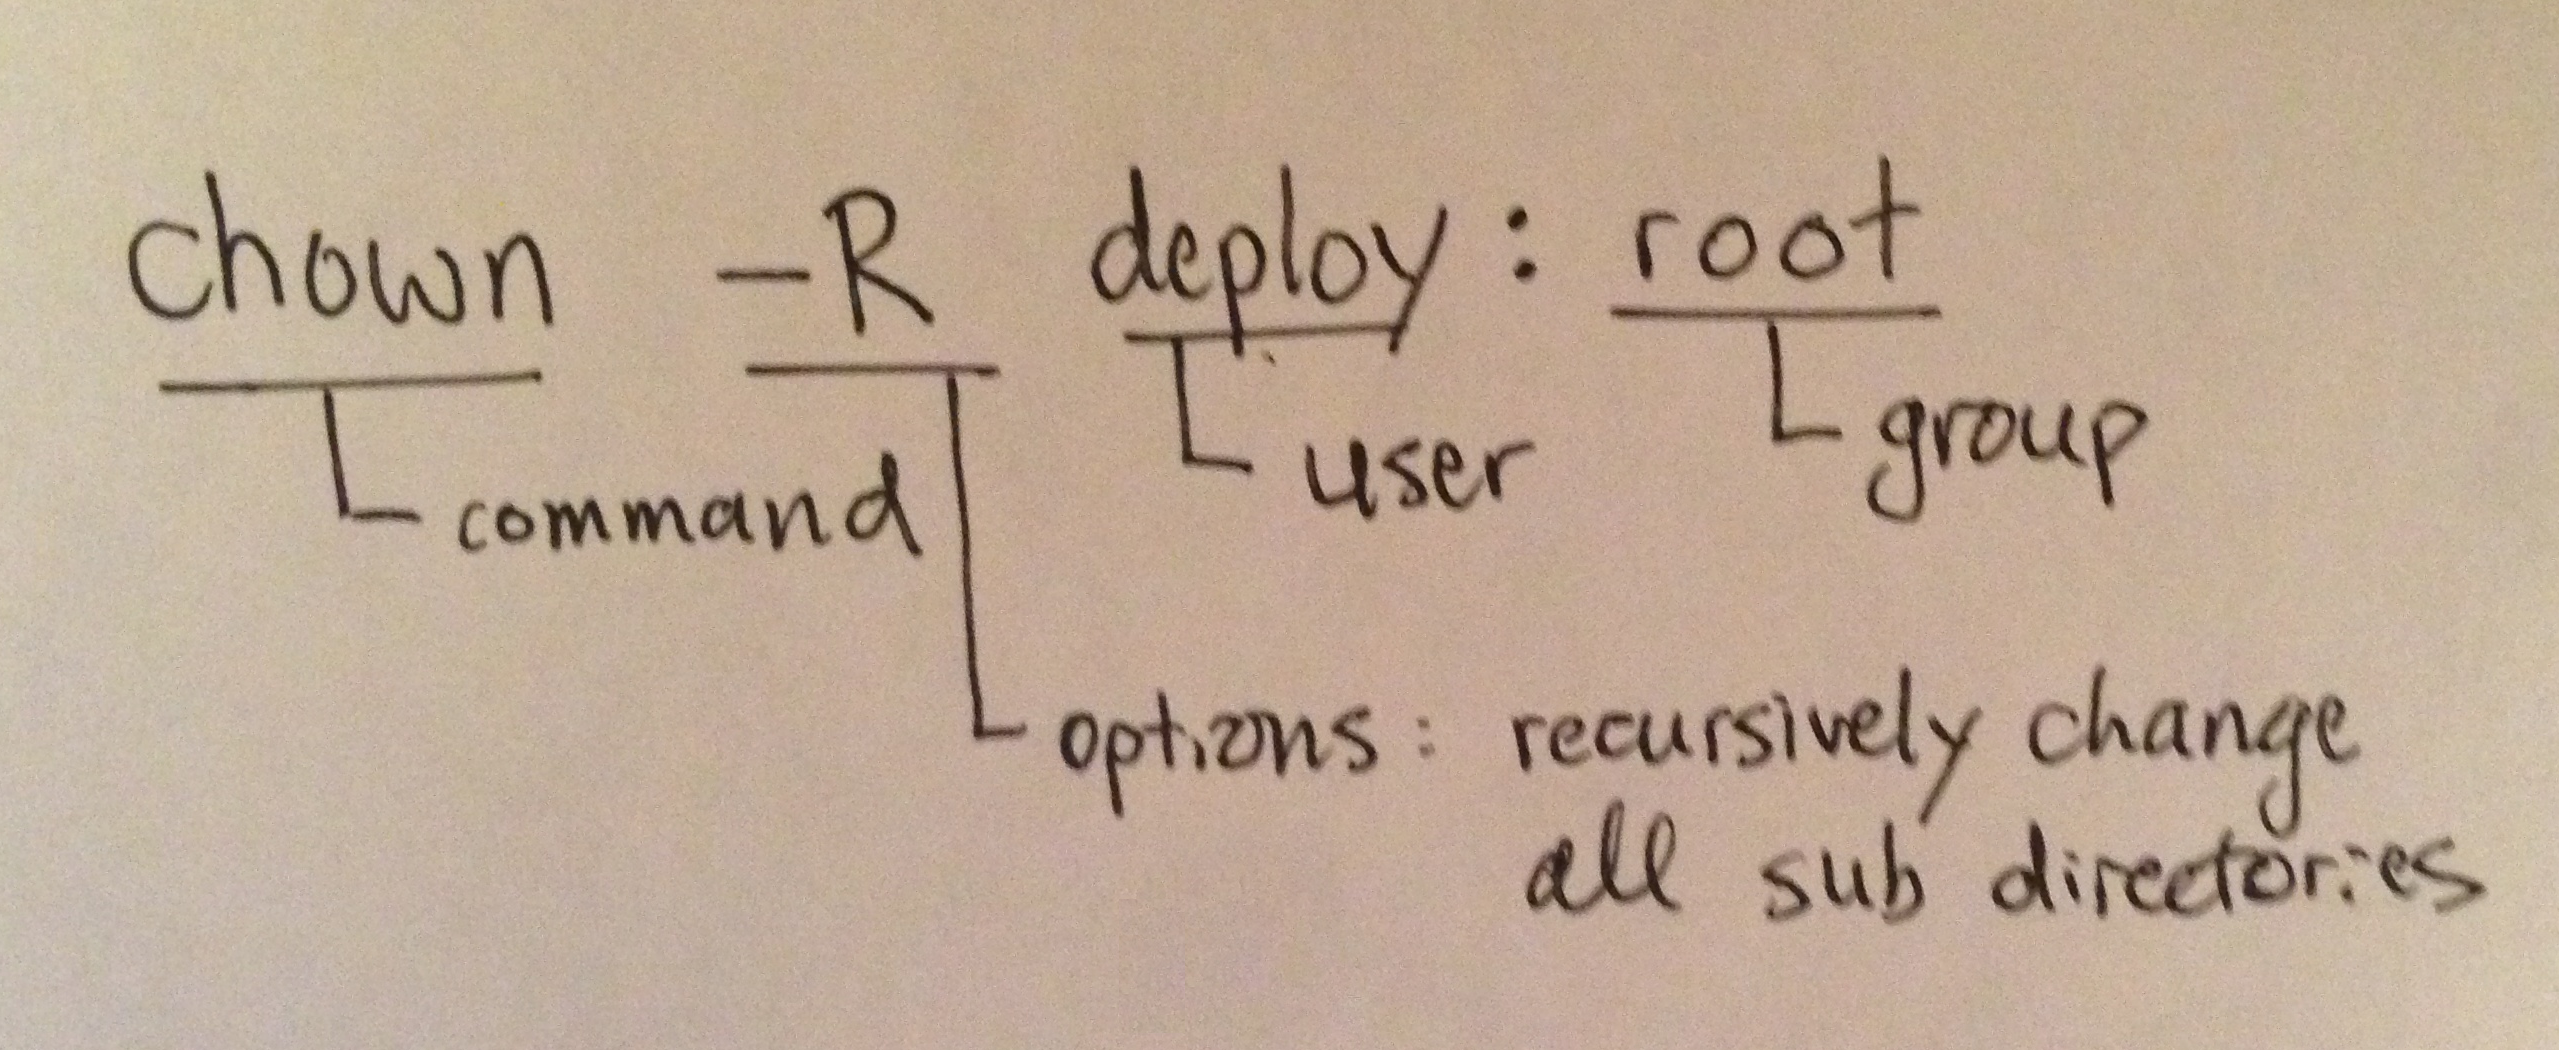 chown -R deploy : root
group
user
command
options : recursively change
all sub directories